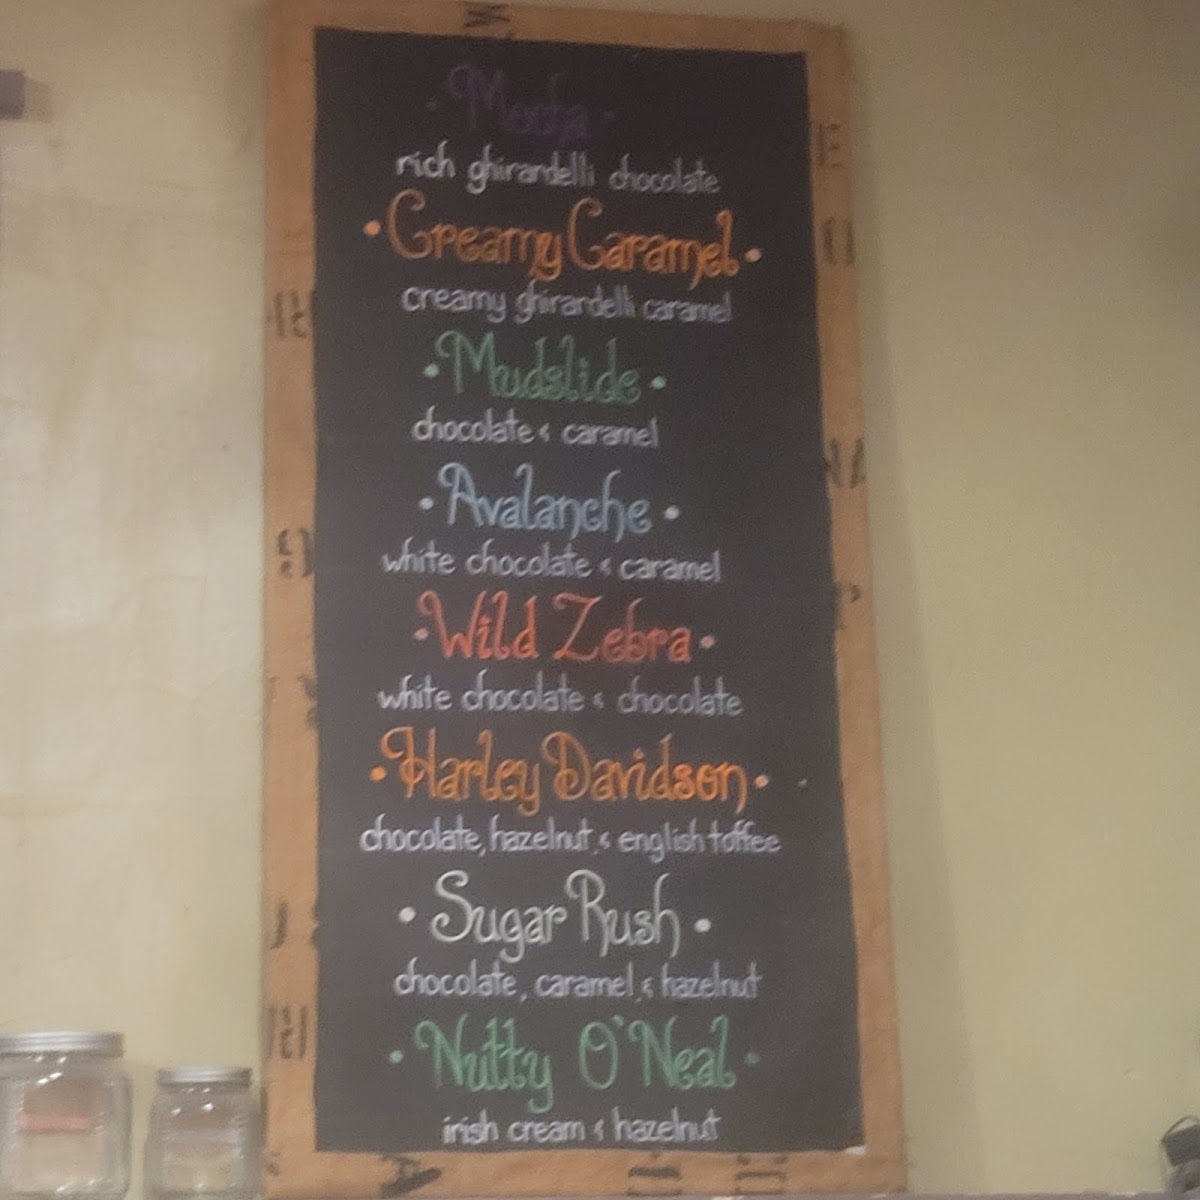 · Mocha ·
rich ghirardelli chocolate
· Creamy Caramel ·
creamy ghirardelli caramel
· Mudslide ·
chocolate & caramel
· Avalanche ·
white chocolate & caramel
· Wild Zebra ·
white chocolate & chocolate
· Harley Davidson ·
chocolate, hazelnut, & english toffee
· Sugar Rush ·
chocolate, caramel, & hazelnut
· Nutty O'Neal ·
irish cream & hazelnut